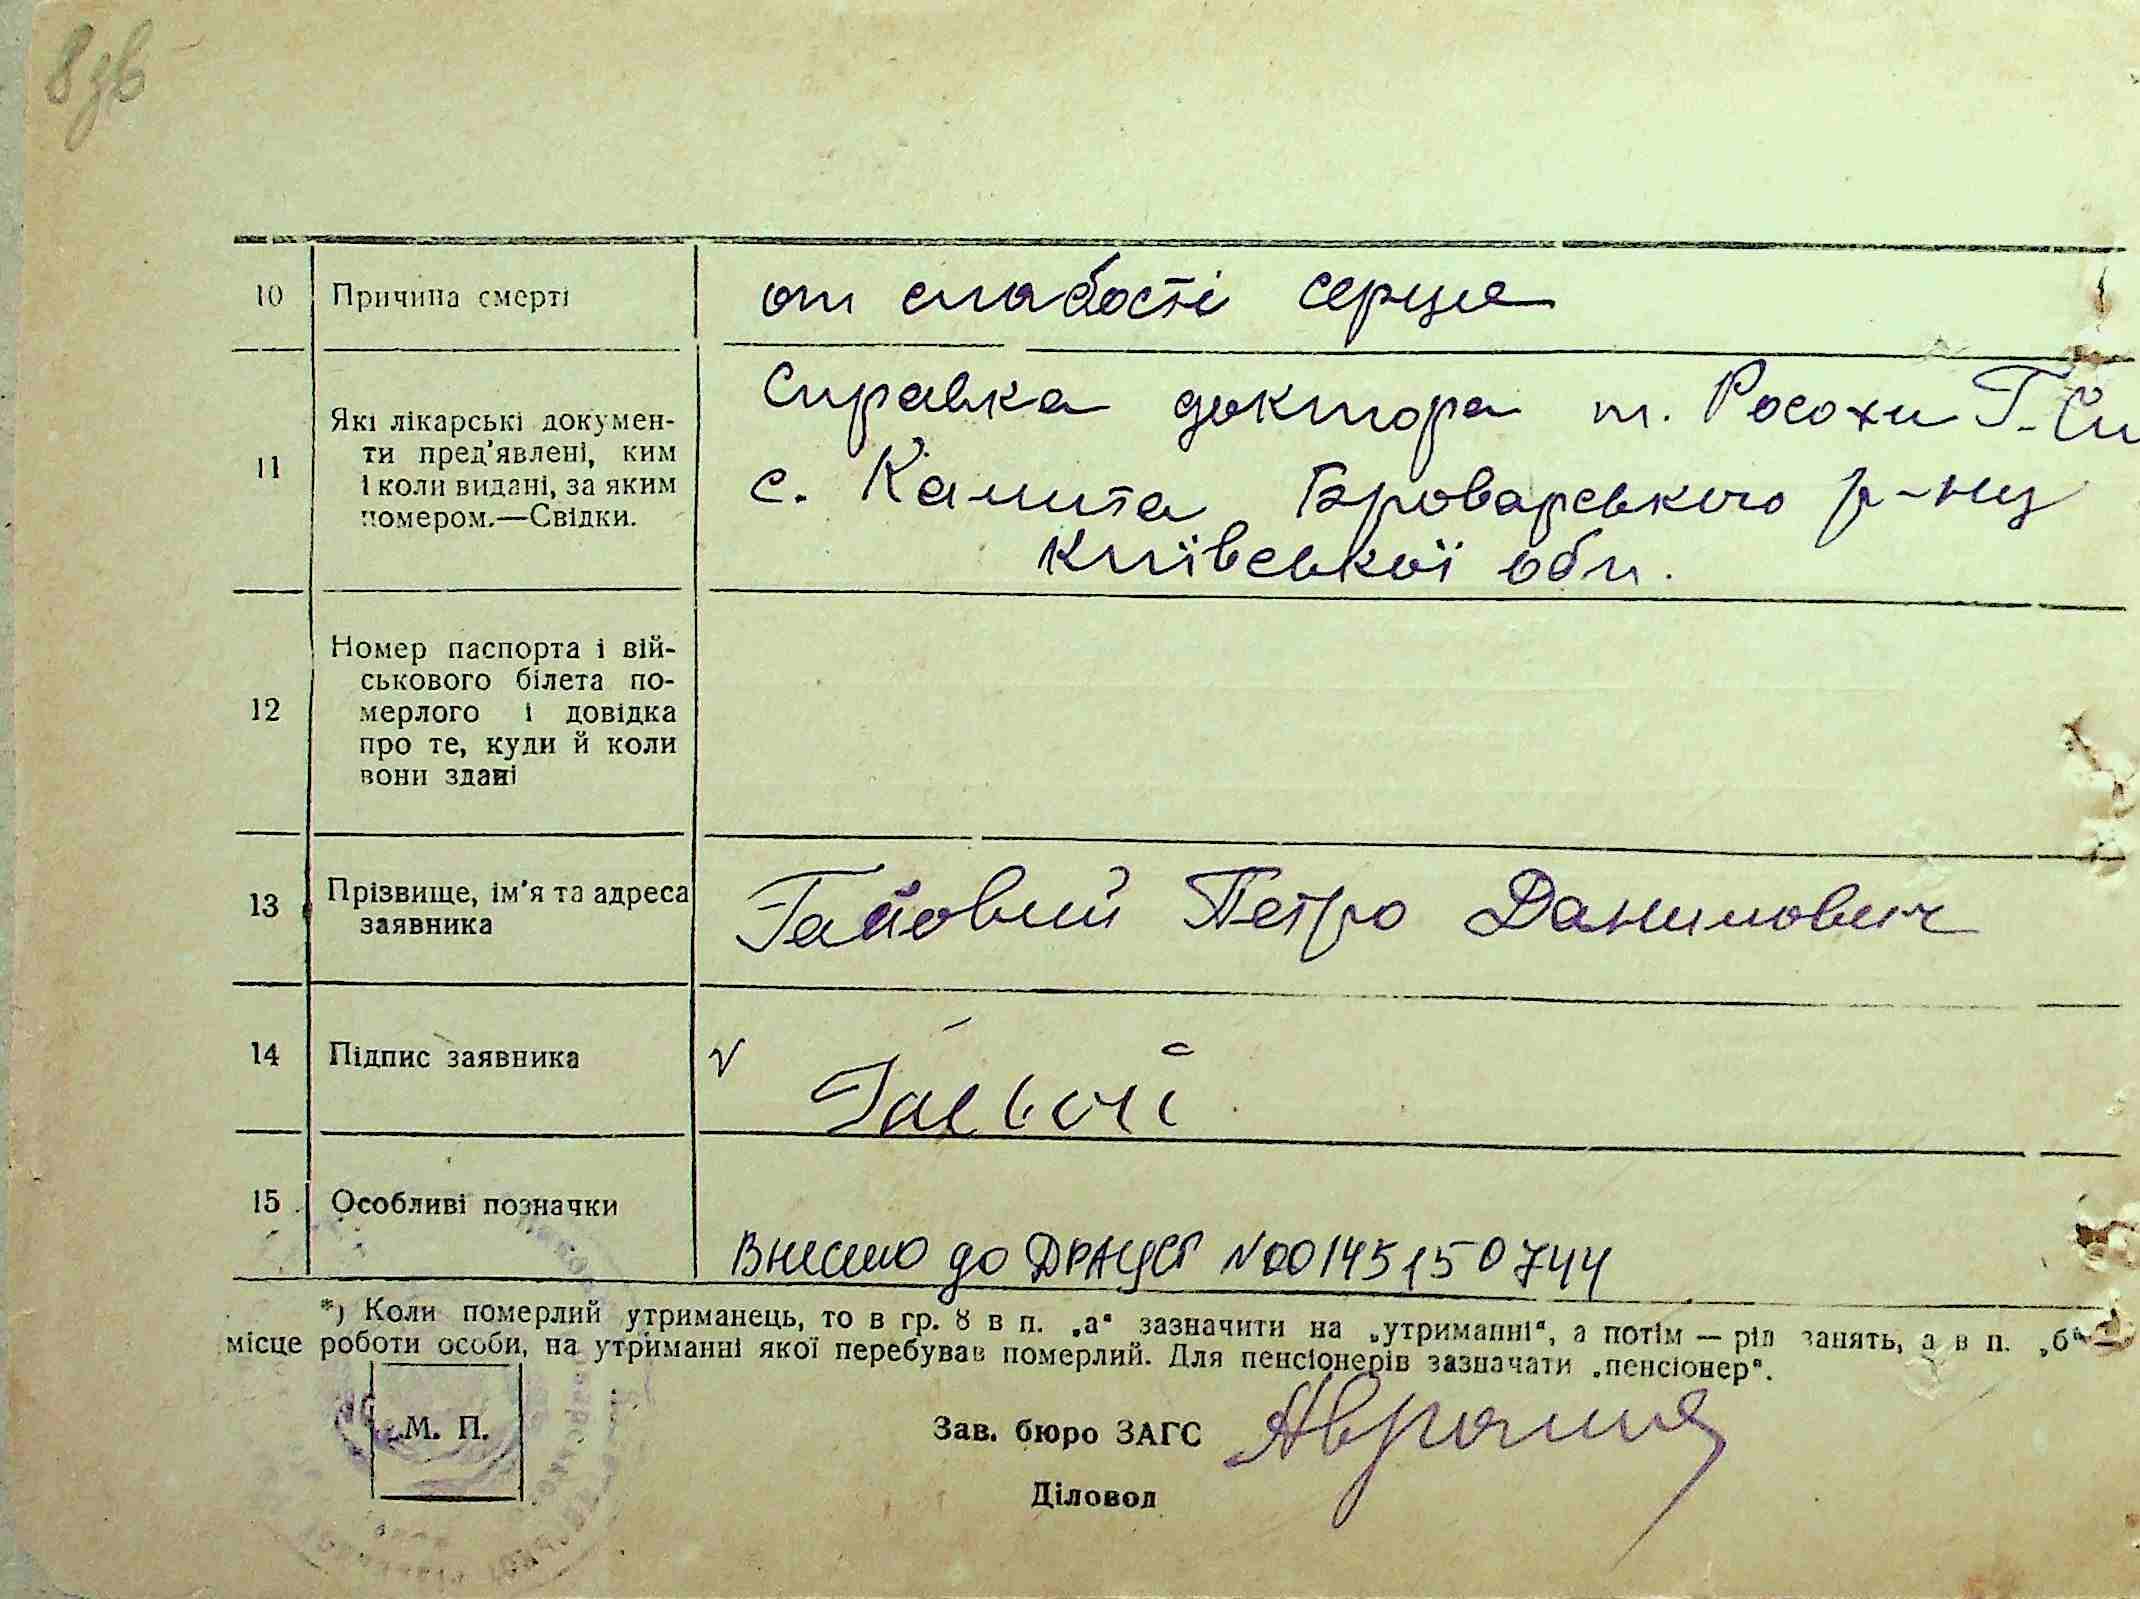 8зв
10 Причина смерті от слабості серця
11 Які лікарські докумен-
ти пред'явлені, ким
і коли видані, за яким
номером.—Свідки.
Справка доктора т. Росохи Г-Си
с. Калита Броварського р-ну
Київської обл.
12 Номер паспорта і вій-
ськового білета по-
мерлого і довідка
про те, куди й коли
вони здані
13 Прізвище, ім'я та адреса
заявника
Гайовий Петро Данилович
14 Підпис заявника
15 Особливі позначки
Внесено до ДРАЦСГ N00145150744
*) Коли померлий утриманець, то в гр. 8 в п. „а“ зазначити на „утриманні“, а потім — рід занять, а в п. „б“
місце роботи особи, на утриманні якої перебував померлий. Для пенсіонерів зазначати „пенсіонер“.
М. П.
Зав. бюро ЗАГС
Діловод